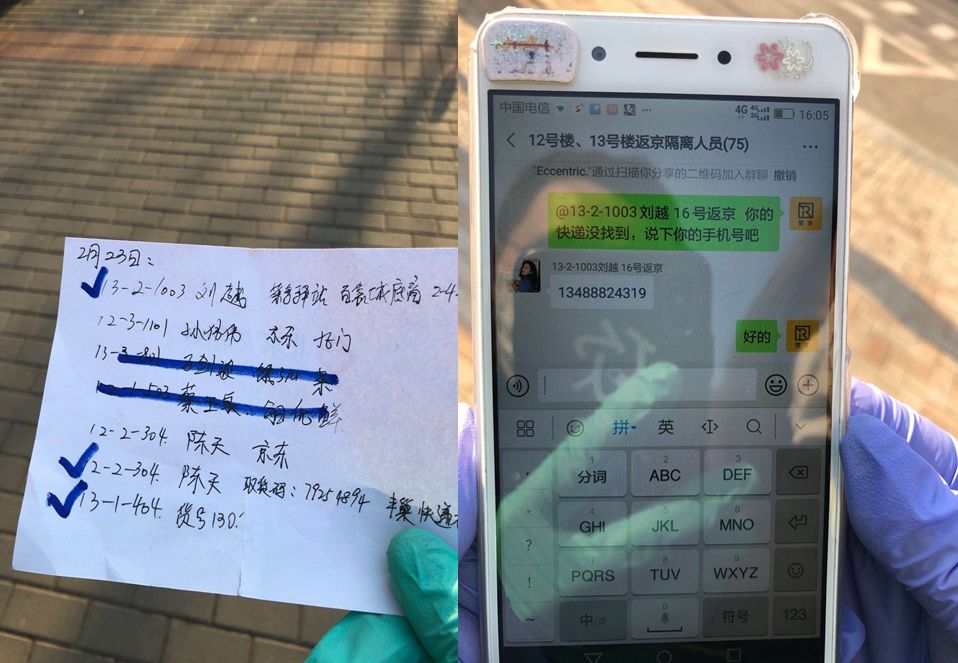 2月23日：
13-2-1003 刘越
12-3-1101 东门
12-2-304. 陈天 京东
12-2-304. 陈天 取货码：79254894 丰巢快递
13-1-404. 货号130
中国电信 4G 4G 2G 16:05
12号楼、13号楼返京隔离人员(75)
"Eccentric."通过扫描你分享的二维码加入群聊 撤销
@13-2-1003刘越 16号返京 你的
快递没找到，说下你的手机号吧
13-2-1003刘越 16号返京
13488824319
好的
你
拼 英
分词 ABC DEF
GHI JKL MNO
PQRS TUV WXYZ
中/英 符号 123